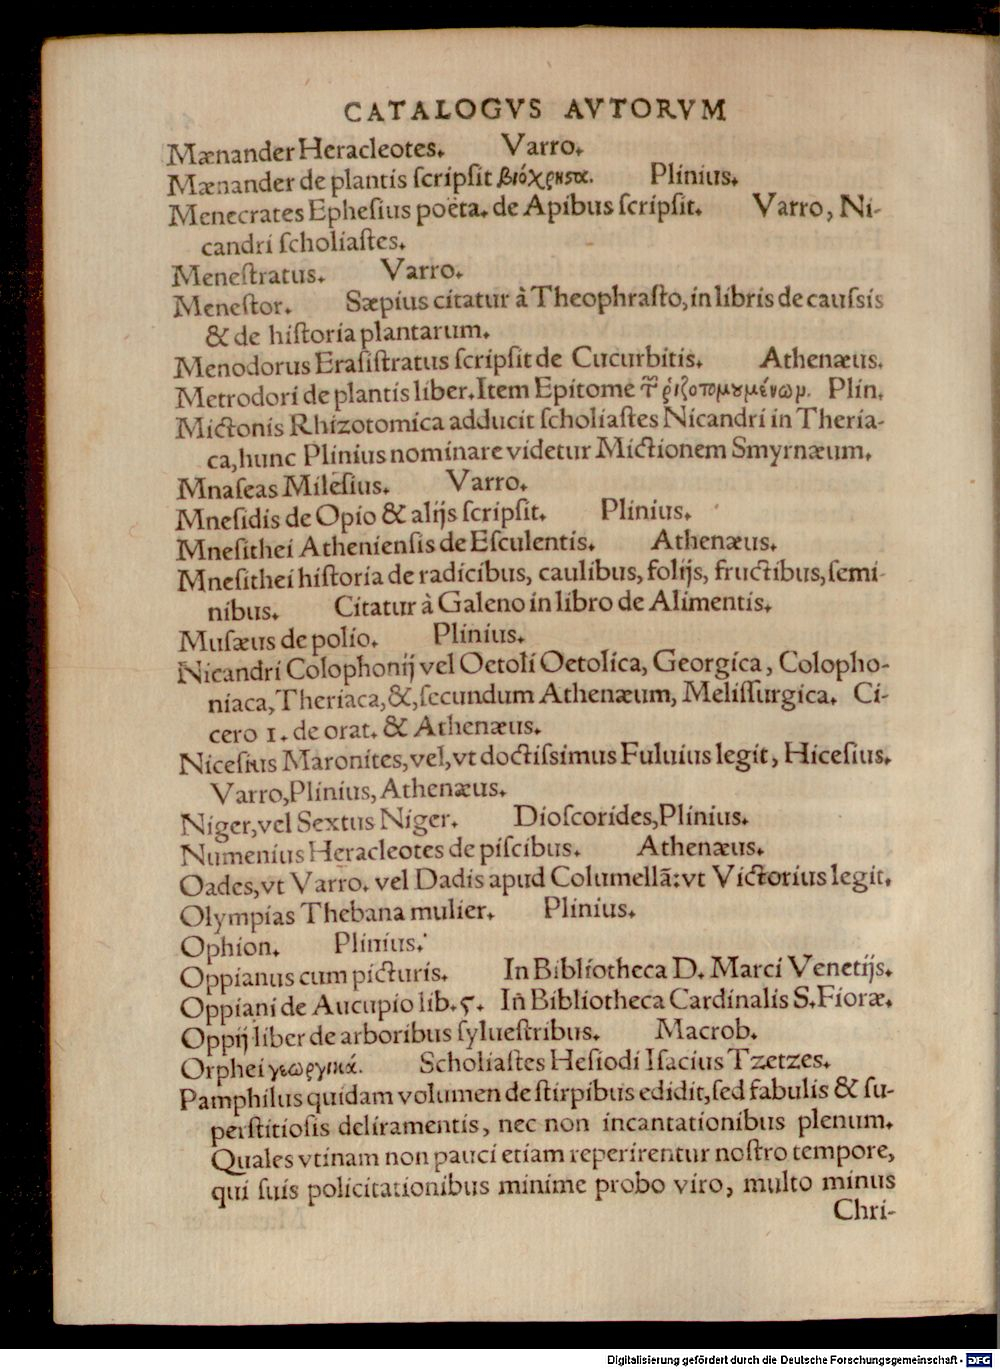 CATALOGVS AVTORVM
Mænander Heracleotes. Varro.
Mænander de plantis ſcripſit βιόχρηστα. Plinius.
Menecrates Epheſius poëta. de Apibus ſcripſit. Varro, Ni-
candri ſcholiaſtes.
Meneſtratus. Varro.
Meneſtor. Sæpius citatur à Theophraſto, in libris de cauſsis
& de hiſtoria plantarum.
Menodorus Eraſiſtratus ſcripſit de Cucurbitis. Athenæus.
Metrodori de plantis liber. Item Epitome τῶν ῥιζοτομουμένων. Plin.
Mictonis Rhizotomica adducit ſcholiaſtes Nicandri in Theria-
ca, hunc Plinius nominare videtur Mictionem Smyrnæum.
Mnaſeas Mileſius. Varro.
Mneſidis de Opio & alijs ſcripſit. Plinius.
Mneſithei Athenienſis de Eſculentis. Athenæus.
Mneſithei hiſtoria de radicibus, caulibus, folijs, fructibus, ſemi-
nibus. Citatur à Galeno in libro de Alimentis.
Muſæus de polio. Plinius.
Nicandri Colophonij vel Oetoli Oetolica, Georgica, Colopho-
niaca, Theriaca, &, ſecundum Athenæum, Meliſſurgica. Ci-
cero 1. de orat. & Athenæus.
Niceſius Maronites, vel, vt doctiſsimus Fuluius legit, Hiceſius.
Varro, Plinius, Athenæus.
Niger, vel Sextus Niger. Dioſcorides, Plinius.
Numenius Heracleotes de piſcibus. Athenæus.
Oades, vt Varro. vel Dadis apud Columellã: vt Victorius legit.
Olympias Thebana mulier. Plinius.
Ophion. Plinius.
Oppianus cum picturis. In Bibliotheca D. Marci Venetijs.
Oppiani de Aucupio lib. 5. In Bibliotheca Cardinalis S. Fioræ.
Oppij liber de arboribus ſylueſtribus. Macrob.
Orphei γεωργικά. Scholiaſtes Heſiodi Iſacius Tzetzes.
Pamphilus quidam volumen de ſtirpibus edidit, ſed fabulis & ſu-
perſtitioſis deliramentis, nec non incantationibus plenum.
Quales vtinam non pauci etiam reperirentur noſtro tempore,
qui ſuis policitationibus minime probo viro, multo minus
Chri-
Digitalisierung gefördert durch die Deutsche Forschungsgemeinschaft - DFG